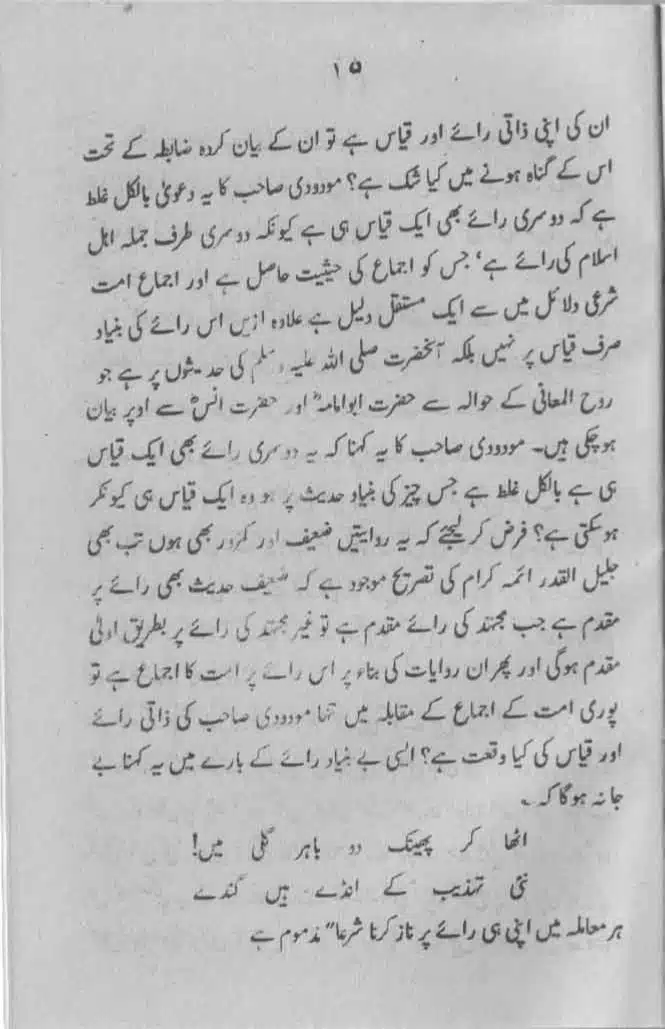 ۱۵
ان کی اپنی ذاتی رائے اور قیاس ہے تو ان کے بیان کردہ ضابطہ کے تحت
اس کے گناہ ہونے میں کیا شک ہے؟ مودودی صاحب کا یہ دعویٰ بالکل غلط
ہے کہ دوسری رائے بھی ایک قیاس ہی ہے کیونکہ دوسری طرف جملہ اہل
اسلام کی رائے ہے‘ جس کو اجماع کی حیثیت حاصل ہے اور اجماع امت
شرعی دلائل میں سے ایک مستقل دلیل ہے علاوہ ازیں اس رائے کی بنیاد
صرف قیاس پر نہیں بلکہ آنحضرت صلی اللہ علیہ وسلم کی حدیثوں پر ہے جو
روح المعانی کے حوالہ سے حضرت ابوامامہؓ اور حضرت انسؓ سے اوپر بیان
ہوچکی ہیں۔ مودودی صاحب کا یہ کہنا کہ یہ دوسری رائے بھی ایک قیاس
ہی ہے بالکل غلط ہے جس چیز کی بنیاد حدیث پر ہو وہ ایک قیاس ہی کیونکر
ہوسکتی ہے؟ فرض کر لیجئے کہ یہ روایتیں ضعیف اور کمزور بھی ہوں تب بھی
جلیل القدر ائمہ کرام کی تصریح موجود ہے کہ ضعیف حدیث بھی رائے پر
مقدم ہے جب مجتہد کی رائے مقدم ہے تو غیر مجتہد کی رائے پر بطریق اولیٰ
مقدم ہوگی اور پھر ان روایات کی بناء پر اس رائے پر امت کا اجماع ہے تو
پوری امت کے اجماع کے مقابلہ میں تنہا مودودی صاحب کی ذاتی رائے
اور قیاس کی کیا وقعت ہے؟ ایسی بے بنیاد رائے کے بارے میں یہ کہنا بے
جا نہ ہوگا کہ ۔
اٹھا کر پھینک دو باہر گلی میں!
نئی تہذیب کے انڈے ہیں گندے
ہر معاملہ میں اپنی ہی رائے پر ناز کرنا شرعا" مذموم ہے